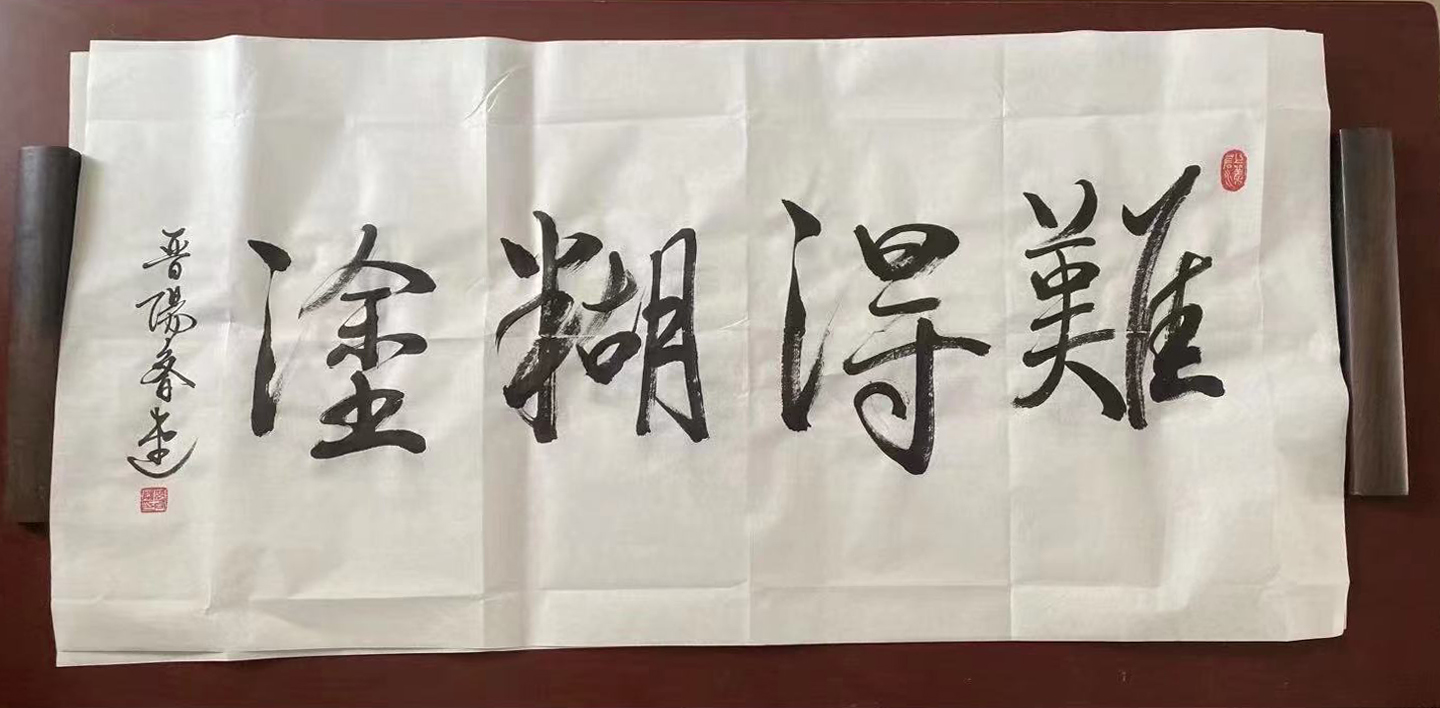 難得糊塗
晋陽春逹